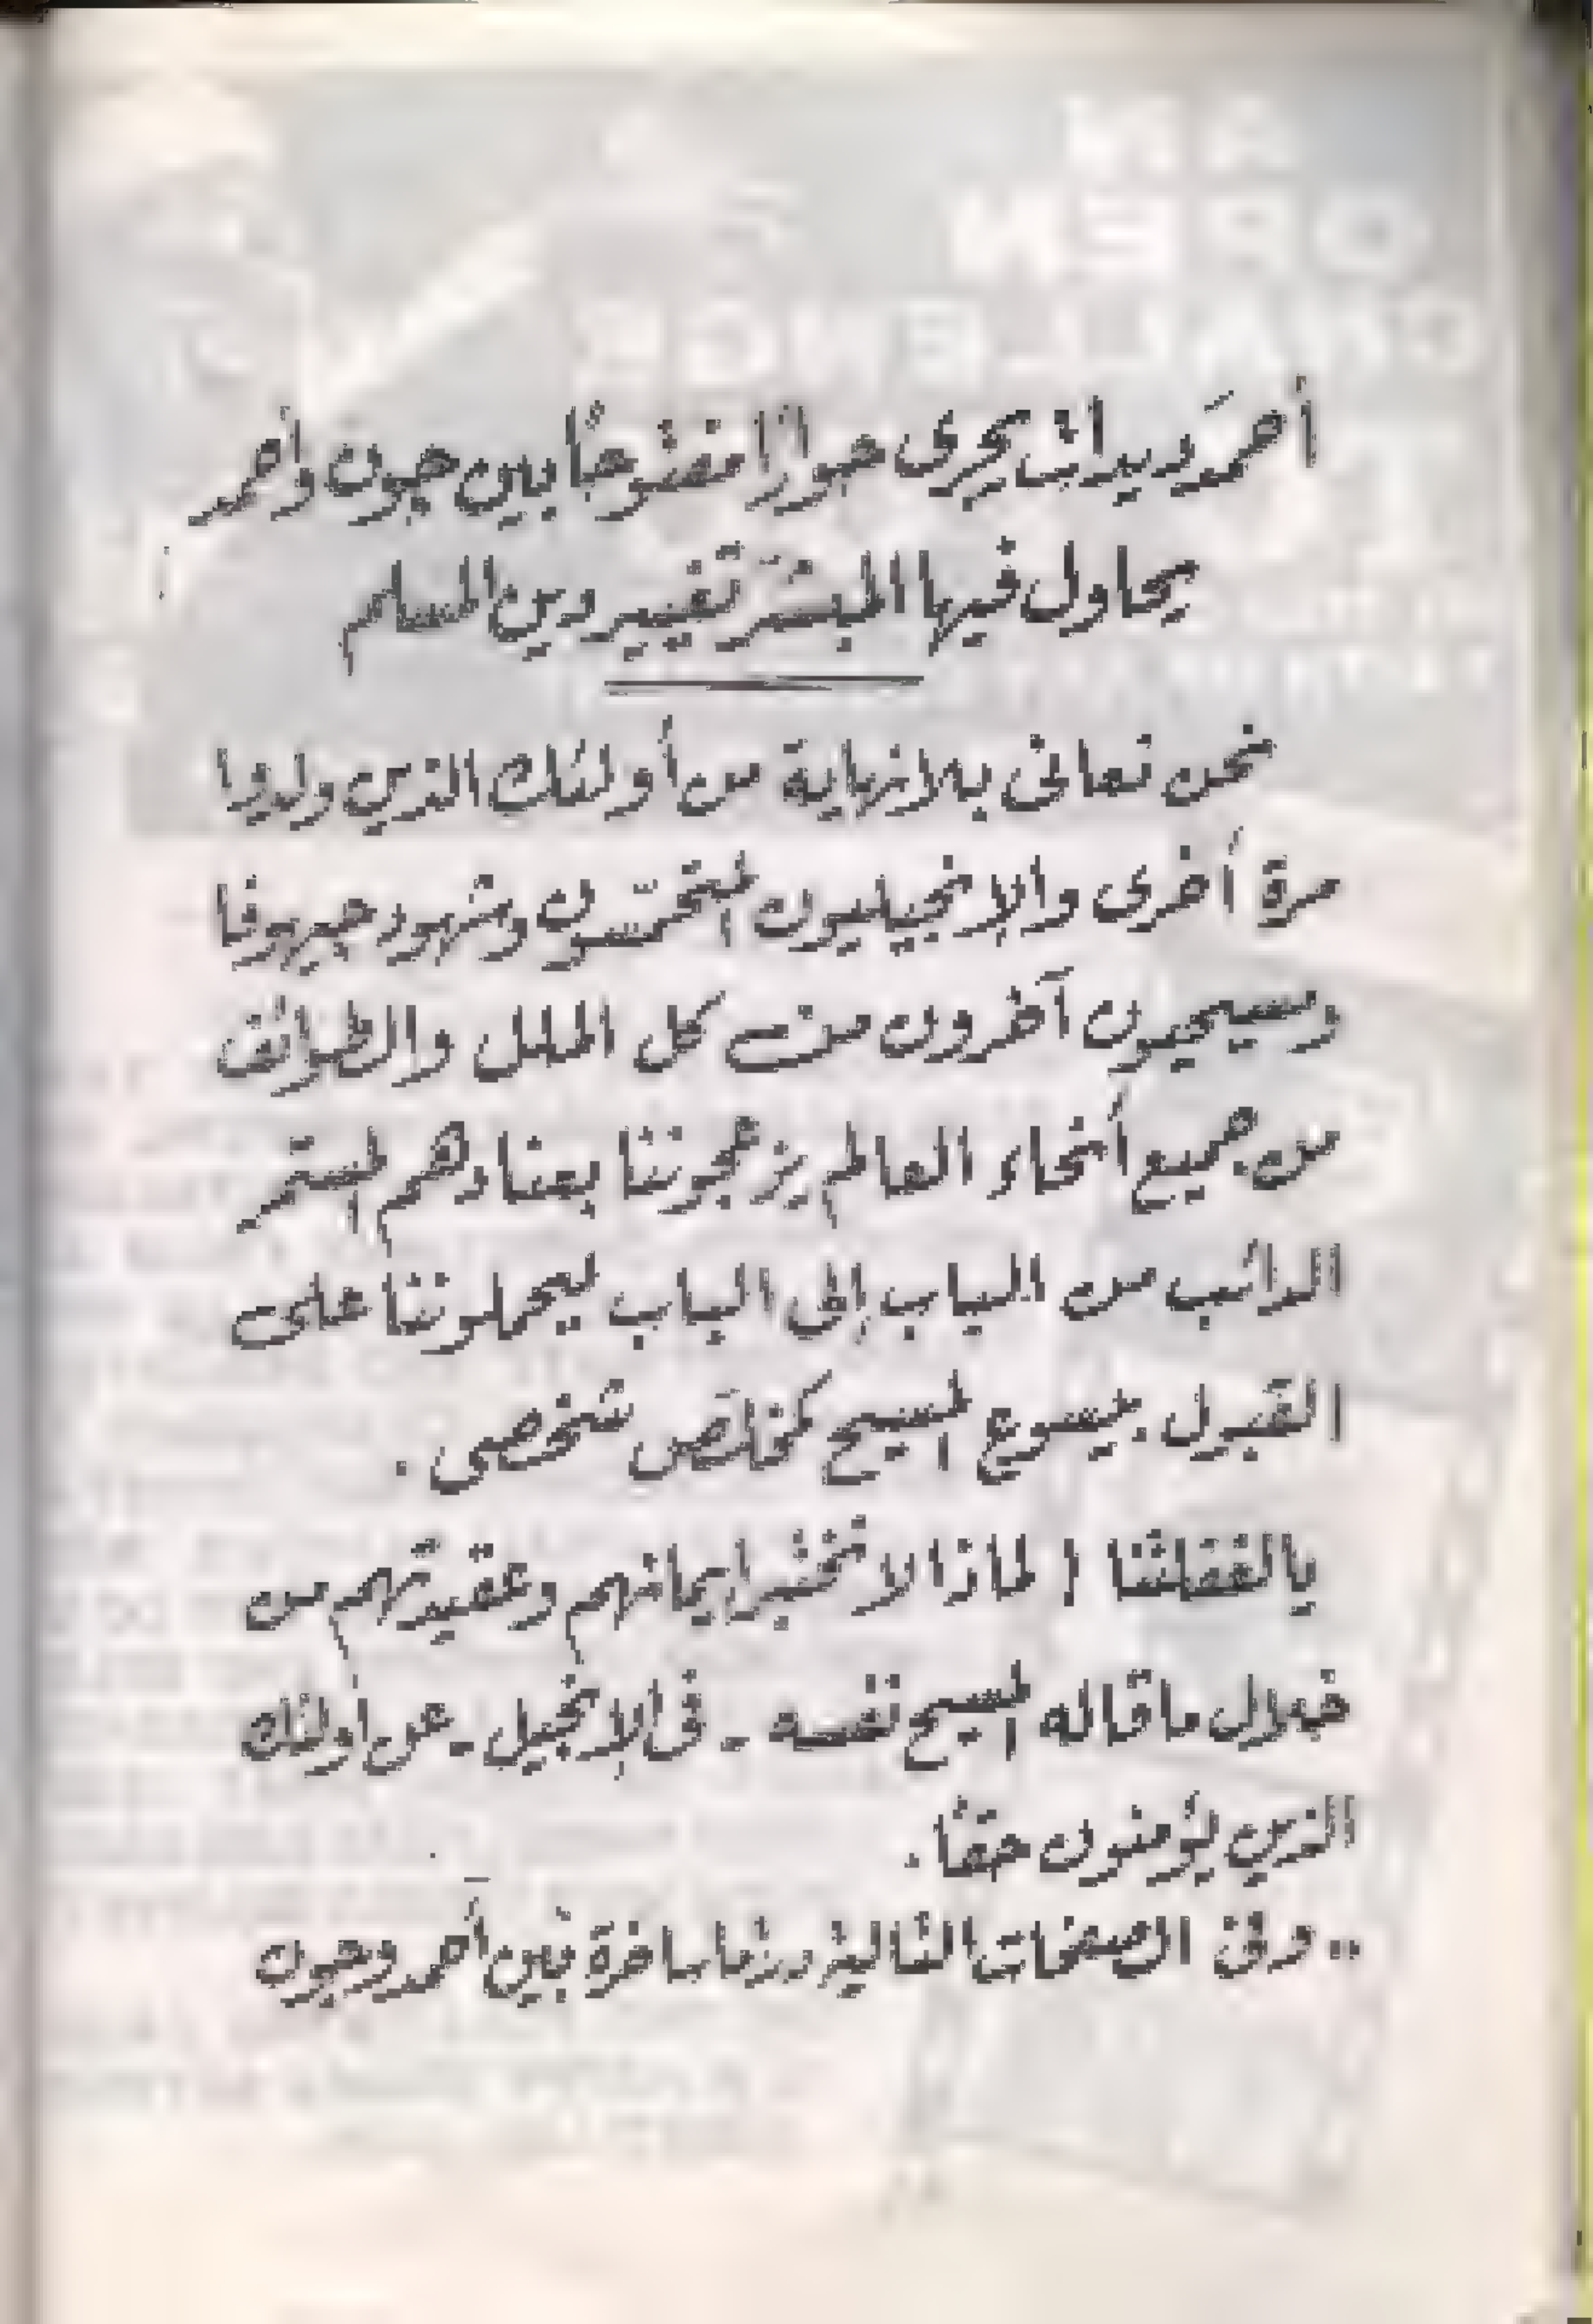 AN
OPEN
CHALLENGE
أحمَد ديدات يجرى حوارًا مفتوحًا بين جون وأحمد
يحاول فيها المبشّر تغيير دين المسلم
نحن نعانى بلا نهاية من أولئك الذين ولدوا
مرة أخرى والإنجيليون المتحمّسون وشهود جيهوفا
ومسيحيون آخرون من كل الملل والطوائف
من جميع أنحاء العالم يزعجوننا بعنادهم المستمر
الدائب من الباب إلى الباب ليحملوننا على
القبول بيسوع المسيح كمخلّص شخصى .
يالغفلتنا ! لماذا لا نختبر إيمانهم وعقيدتهم من
خلال ما قاله المسيح نفسه - فى الإنجيل - عن أولئك
الذين يؤمنون حقًا .
.. وفى الصفحات التالية بين أحمد وجون